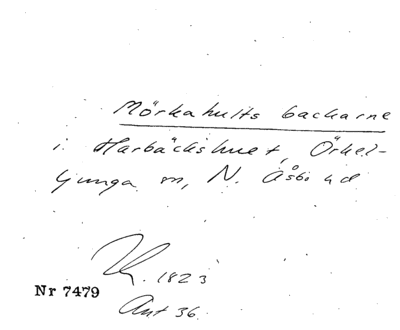 Mörkahults backarne
i Harbäckshuet, Örkel-
ljunga sn, N. Åsbo hd
1823
Nr 7479
Ant 36.